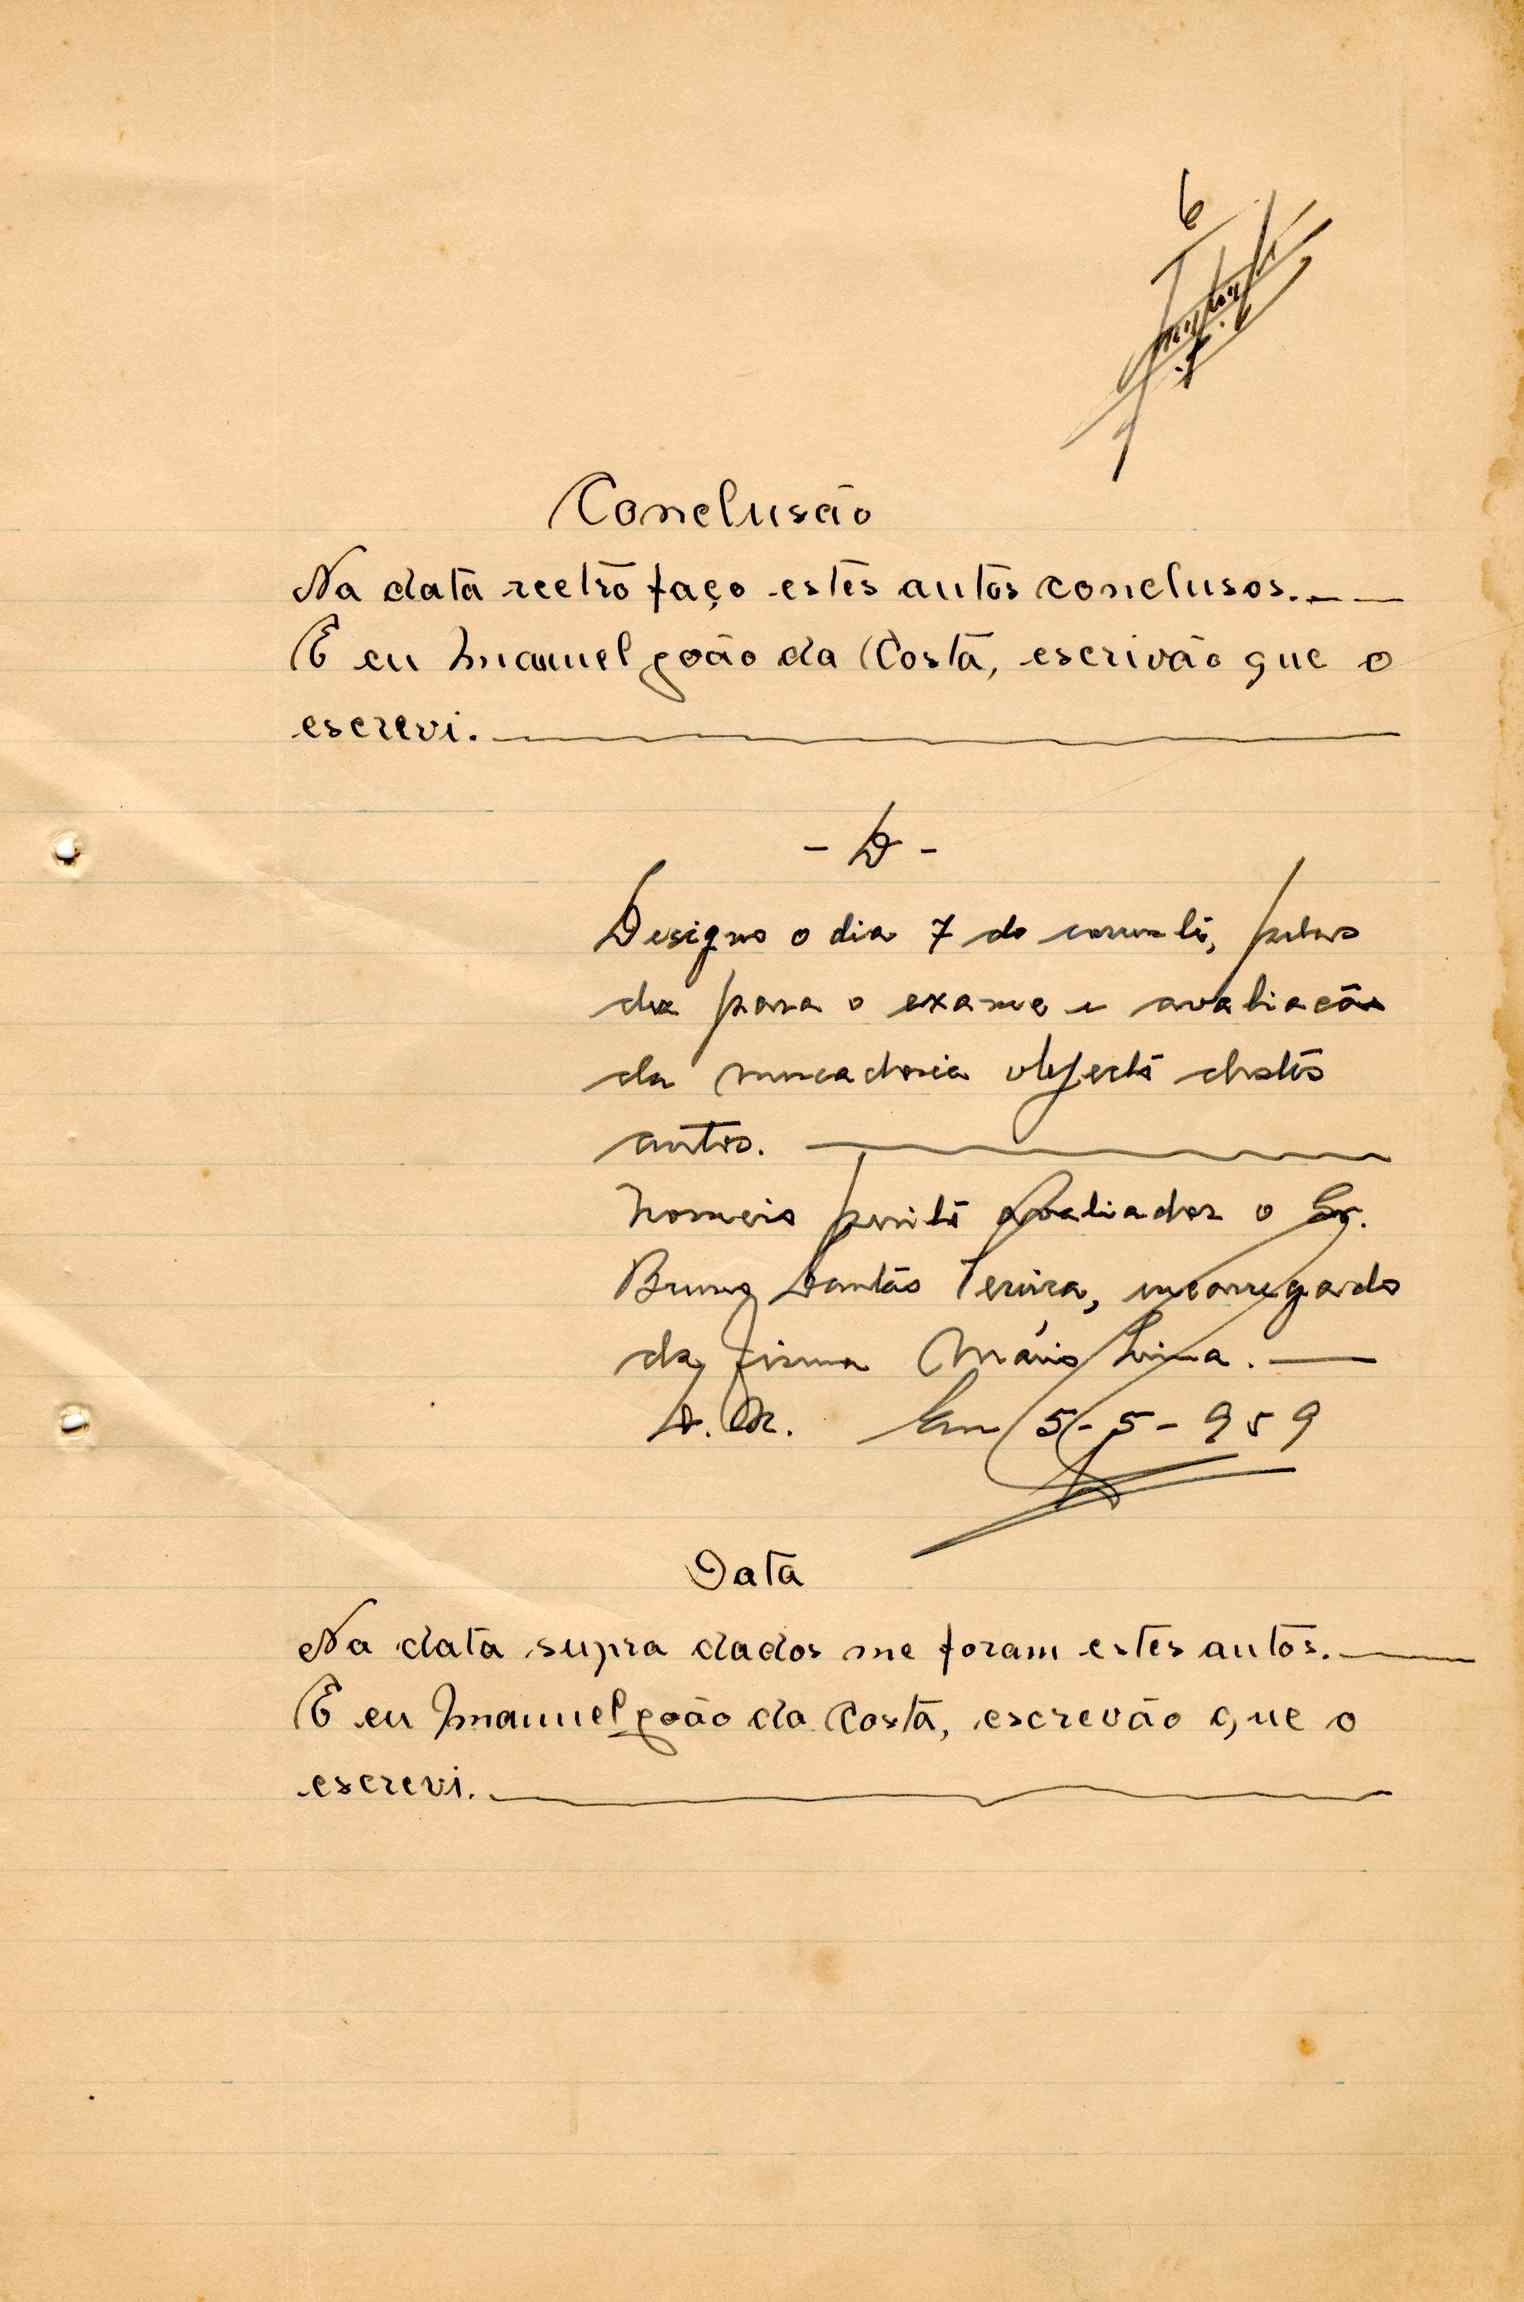 6
Conclusão
Na data reetro faço estes autos conclusos.
E eu Manuel João da Costa, escrivão que o
escrevi.
- D -
Designo o dia 7 do corrente, pelas
dez para o exame e avaliação
da mercadoria objecto destes
autos.
Nomeio perito avaliador o Sr.
Bruno Dantas Pereira, encarregado
da firma Mário Lima.
D. N. Em 5-5-959
Data
Na data supra dados me foram estes autos.
E eu Manuel João da Costa, escrevão que o
escrevi.